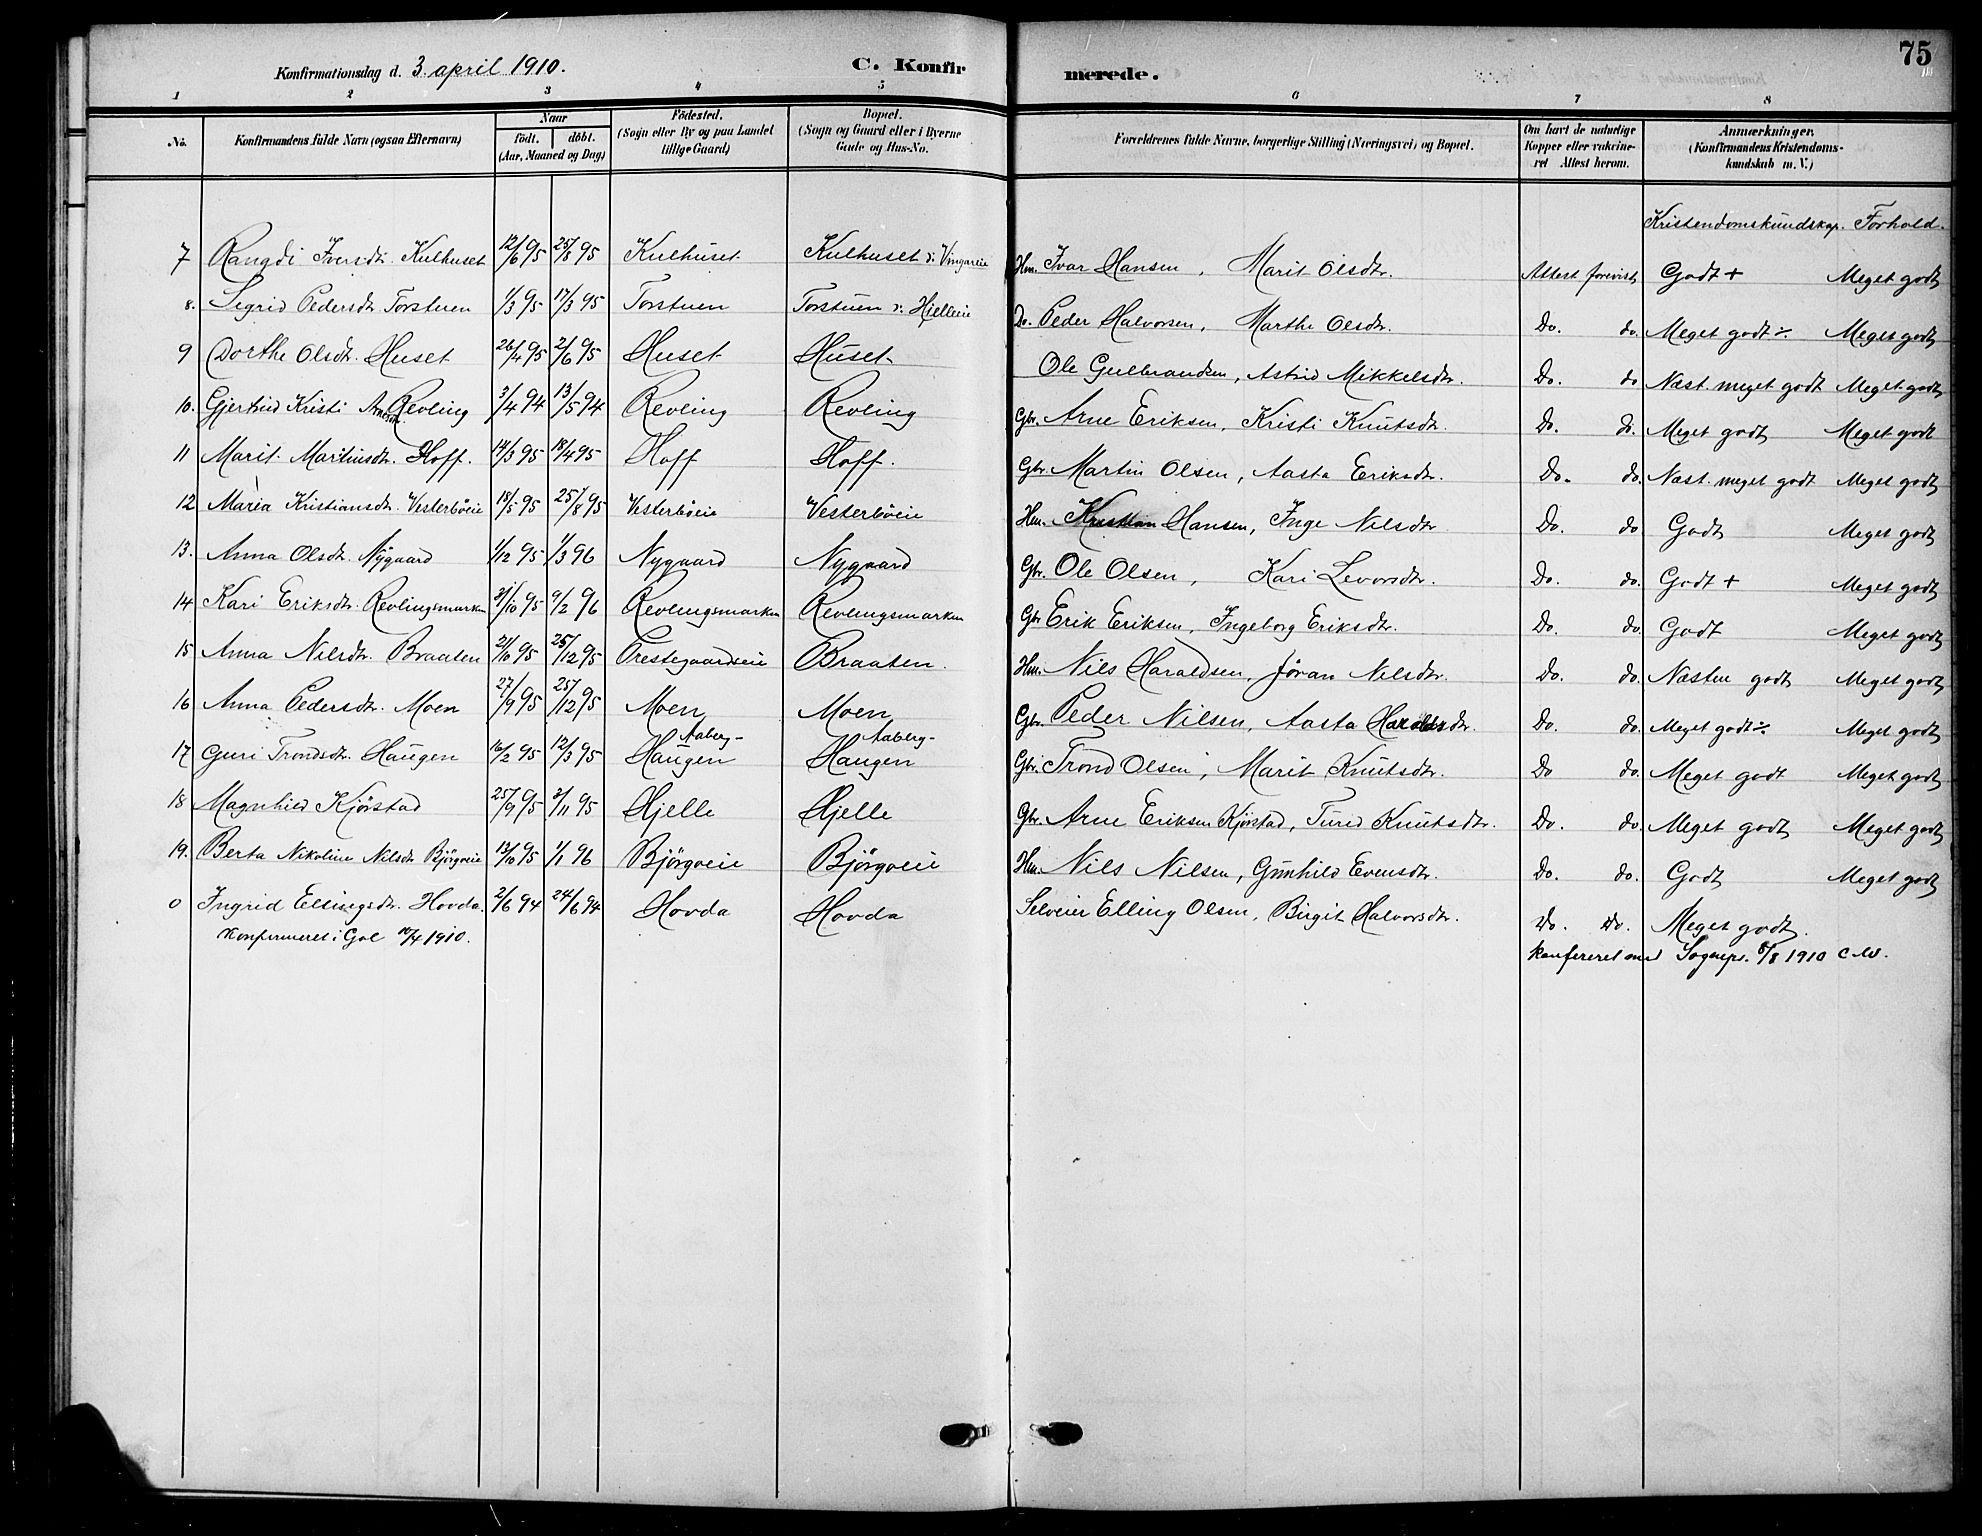 75
Konfirmationsdag d. 3. april 1910. C. Konfirmerede.
1 2 3 4 5 6 7 8
No. Konfirmandens fulde Navn (ogsaa Efternavn) Naar født. døbt. (Aar, Maaned og Dag) Fødested. (Sogn eller By og paa Landet tillige Gaard) Bopæl. (Sogn og Gaard eller i Byerne Gade og Hus-No. Forældrenes fulde Navne, borgerlige Stilling (Næringsvei) og Bopæl. Om havt de naturlige Kopper eller vakcineret Attest herom. Anmærkninger. (Konfirmandens Kristendomskundskab m. V.)
Kristendomskundskap. Forhold.
7 Rangdi Iversdtr. Kulhuset 12/6 95 25/8 95 Kulhuset Kulhuset v. Vingareie Hm. Ivar Hansen, Marit Olsdtr. Attest forevist Godt + Meget godt
8. Sigrid Pedersdtr. Torstuen 1/3 95 17/3 95 Torstuen Torstuen v. Hjelleie Do. Peder Halvorsen, Marthe Olsdtr. Do. do. Meget godt ÷ Meget godt
9 Dorthe Olsdtr. Huset 26/4 95 2/6 95 Huset Huset Ole Gulbrandsen, Astrid Mikkelsdtr. Do. do Næst. meget godt Meget godt
10. Gjertrud Kristi Arnesdtr. Revling 3/4 94 13/5 94 Revling Revling Gbr. Arne Eriksen, Kristi Knutsdtr. Do. do. Meget godt Meget godt
11 Marit Martinsdtr. Hoff. 14/3 95 18/4 95 Hoff Hoff. Gbr. Martin Olsen, Aasta Eriksdtr. Do. do. Næst. meget godt Meget godt
12 Maria Kristiansdtr. Vesterbøeie 18/5 95 25/8 95 Vesterbøeie Vesterbøeie Hm. Kristian Hansen, Inge Nilsdtr. Do. do Godt Meget godt
13. Anna Olsdtr. Nygaard 1/12 95 1/3 96 Nygaard Nygaard Gbr. Ole Olsen, Kari Levorsdtr. Do. do. Godt + Meget godt
14 Kari Eriksdtr. Revlingsmarken 31/10 95 9/2 96 Revlingsmarken Revlingsmarken Gbr Erik Eriksen, Ingeborg Eriksdtr. Do. do. Godt Meget godt
15 Anna Nilsdtr. Braaten 21/10 95 25/12 95 Prestegaardseie Braaten. Hm. Nils Haraldsen, Jøran Nilsdtr. Do. do. Næsten godt Meget godt
16 Anna Pedersdtr. Moen 27/9 95 25/12 95 Moen Moen Gbr. Peder Nilsen, Aasta Haraldsdtr. Do. do. Meget godt ÷ Meget godt
17 Guri Trondsdtr. Haugen 16/2 95 12/3 95 Aaberg-Haugen Aaberg-Haugen Gbr. Trond Olsen, Marit Knutsdtr. Do do. Meget godt Meget godt
18 Magnhild Kjörstad 25/9 95 3/11 95 Hjelle Hjelle Gbr. Arne Eriksen Kjörstad, Turid Knutsdtr. Do. do. Meget godt Meget godt
19. Berta Nikoline Nilsdtr Bjørgoeie 13/10 95 1/1 96 Bjørgoeie Bjørgoeie Hm. Nils Nilsen, Gunhild Evensdtr. Do. do. Godt Meget godt
0 Ingrid Ellingsdtr. Hovda. 2/6 94 24/6 94 Hovda Hovda Selveier Elling Olsen, Birgit Halvorsdtr. Do. Do. Meget godt.
Konfirmeret i Gol 10/4 1910. konfereret med Sognepr. 8/8 1910 C.W.